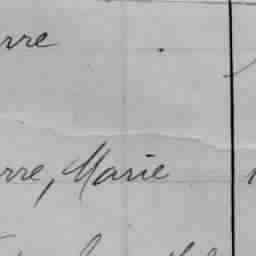 rre
rre, Marie